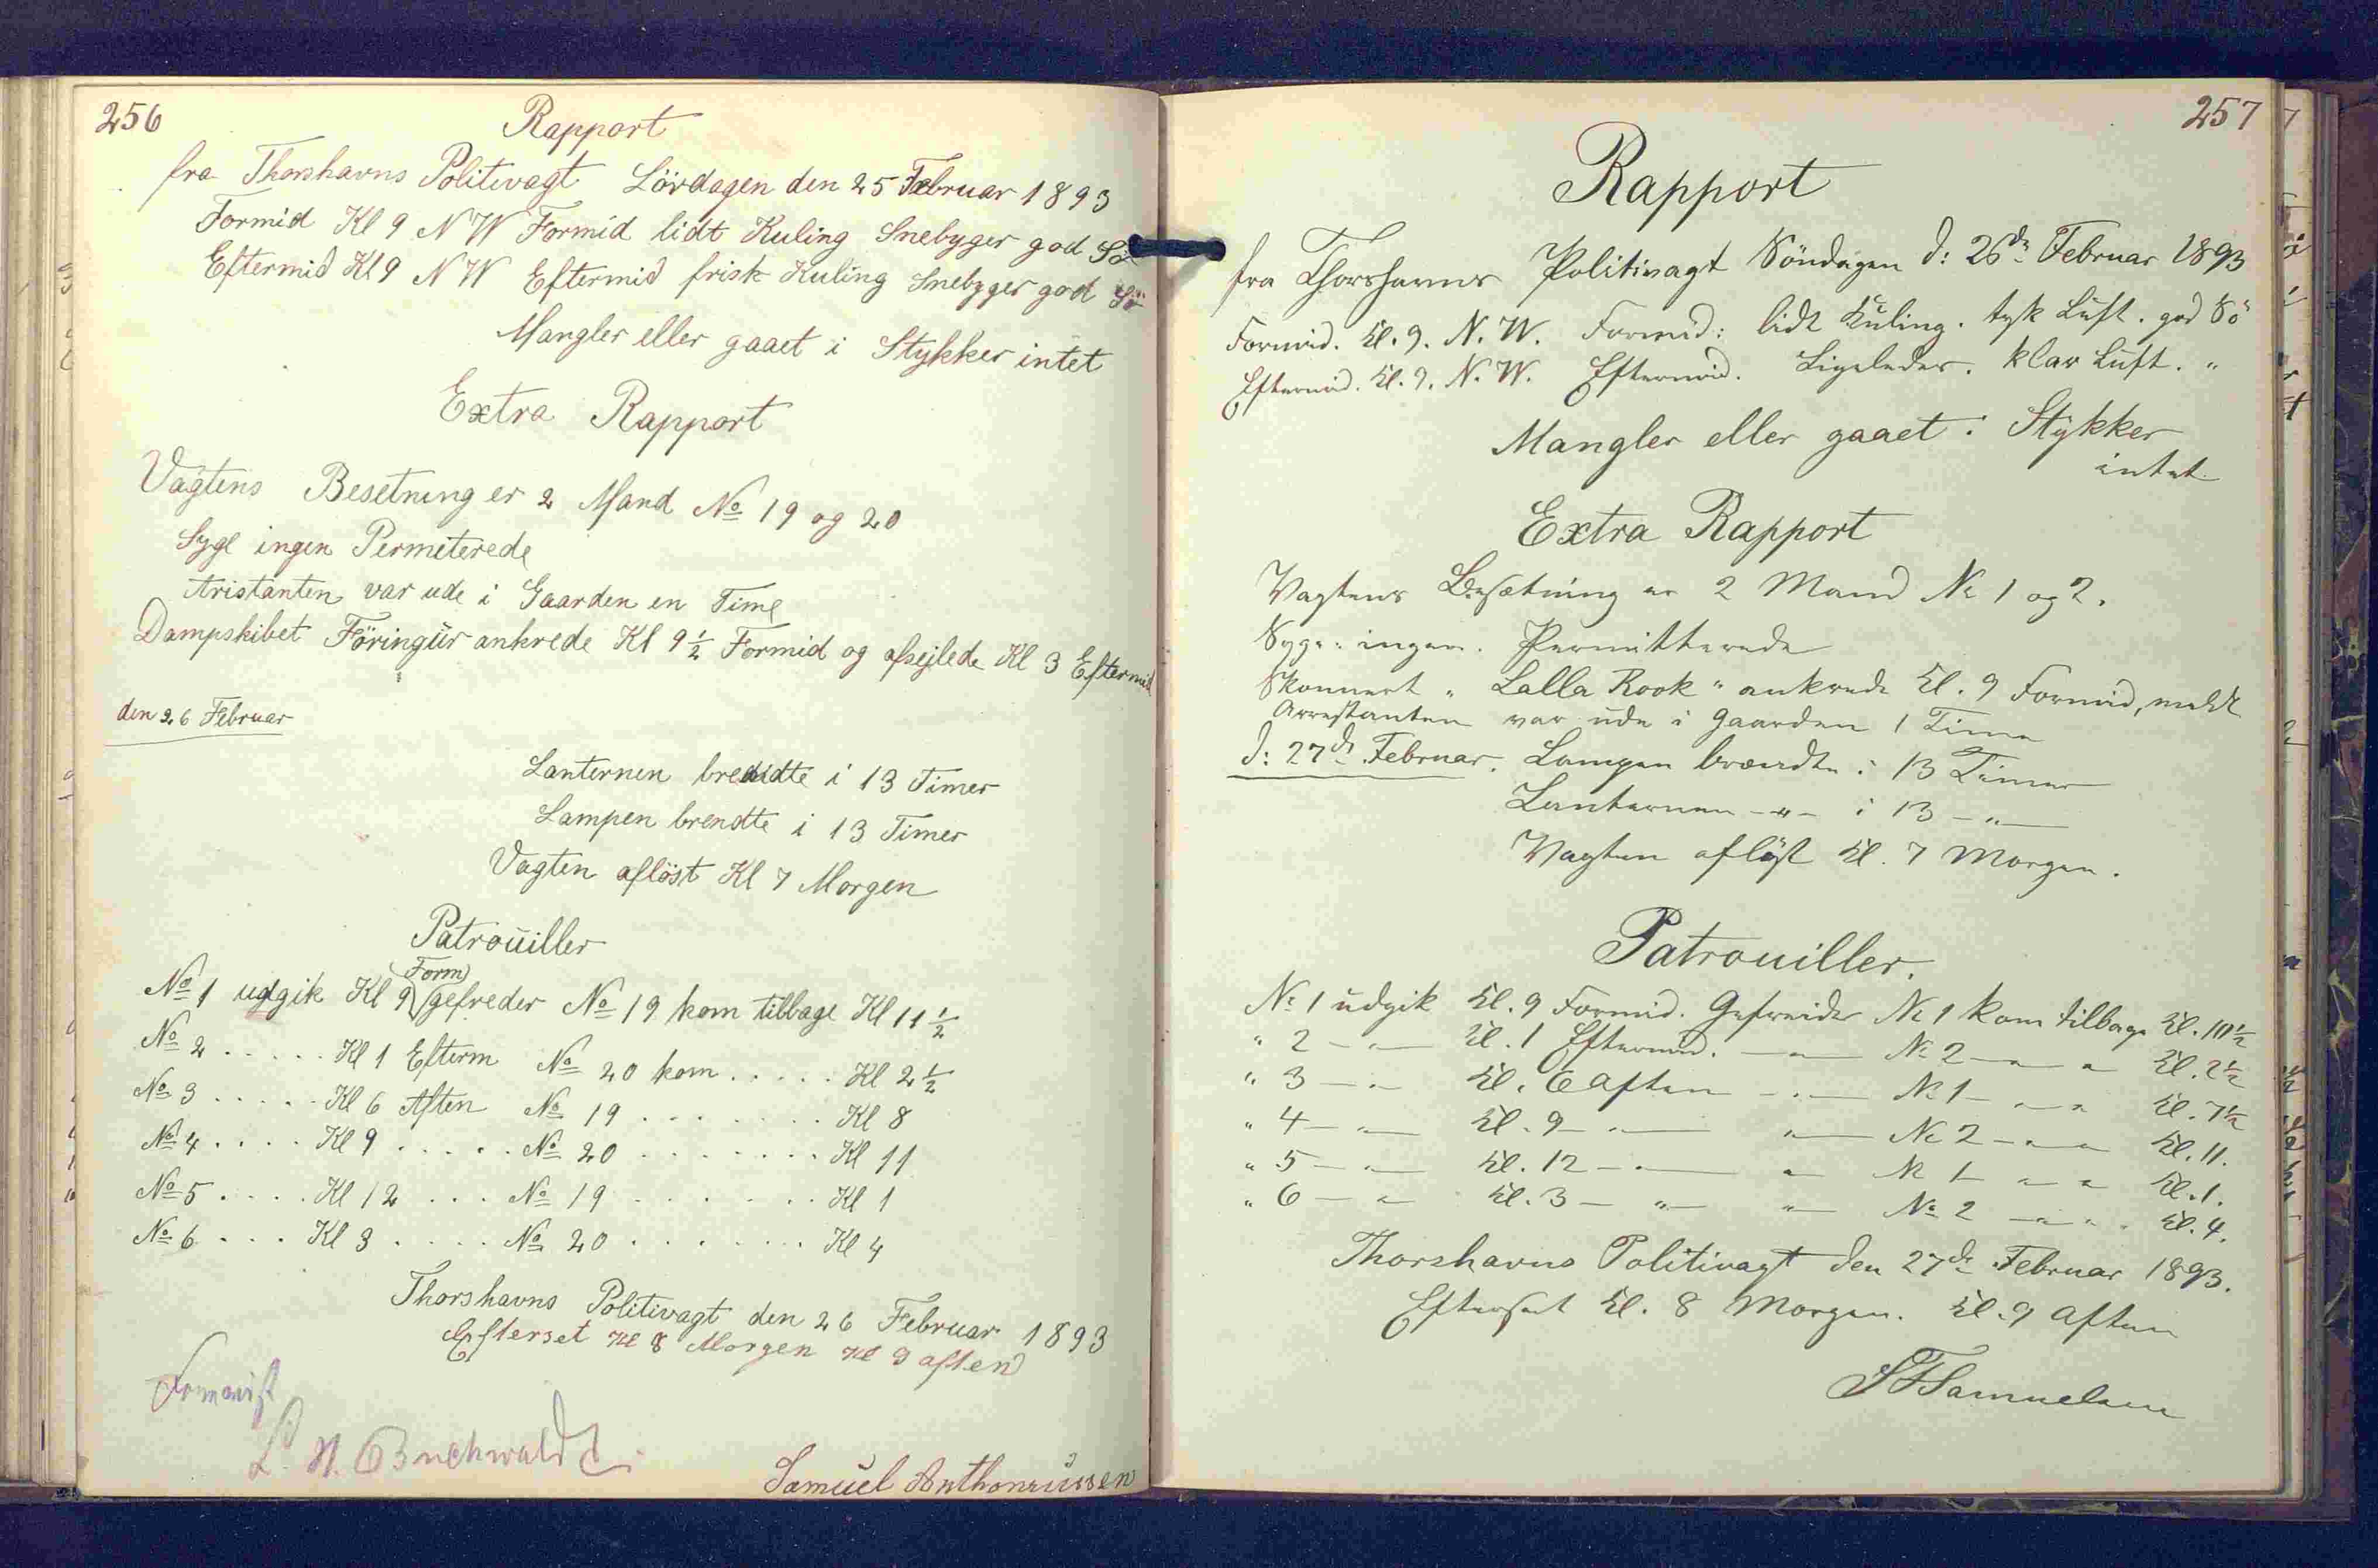 256
Rapport
fra Thorshavns Politivagt Lördagen den 25 Februar 1893
Formid Kl 9 N W Formid lidt Kuling Snebyger god Sö
Eftermid Kl 9 N W Eftermid frisk Kuling Snebyger god Sö
Mangler eller gaaet i Stykker intet
Extra Rapport
Vagtens Besetning er 2 Mand No 19 og 20
Syge ingen Permeterede
Aristanten var ude i Gaarden en Time
Dampskibet Föringür ankrede Kl 9 1/2 Formid og afsejlede Kl 3 Eftermid
den 26 Februar
Lanternen brendte i 13 Timer
Lampen brendte i 13 Timer
Vagten aflöst Kl 7 Morgen
Patrouiller
No 1 udgik Kl 9 (Form) gefreder No 19 kom tilbage Kl 11 1/2
No 2 ..... Kl 1 Efterm No 20 kom ..... Kl 2 1/2
No 3 ..... Kl 6 Aften No 19 ....... Kl 8
No 4 .... Kl 9 ..... No 20 ....... Kl 11
No 5 .... Kl 12 ... No 19 ...... Kl 1
No 6 ... Kl 3 .... No 20 ...... Kl 4
Thorshavns Politivagt den 26 Februar 1893
Efterset Kl 8 Morgen Kl 9 aften
Fremvist
L. N. Buchwaldt
Samuel Anthoniüssen
257
Rapport
fra Thorshavns Politivagt Söndagen d: 26de Februar 1893
Formid. Kl. 9. N. W. Formid: lidt Kuling. tyk Luft. god Sö
Eftermid. Kl. 9. N. W. Eftermid. Ligeledes. klar Luft. "
Mangler eller gaaet i Stykker
intet
Extra Rapport
Vagtens Besætning er 2 Mand No 1 og 2.
Syge: ingen. Permitterede
Skonnert "Lalla Rook" ankrede Kl. 9 Formid, meldt
Arrestanten var ude i Gaarden 1 Time
d: 27de Februar. Lampen brændte i 13 Timer
Lanternen -"- i 13 -"-
Vagten aflöst Kl. 7 Morgen.
Patrouiller.
No 1 udgik Kl. 9 Formid. Gefreider No 1 kom tilbage Kl. 10 1/2
" 2 -"- Kl. 1 Eftermid. -"- No 2 -"- " Kl. 2 1/2
" 3 -"- Kl. 6 Aften -"- No 1 -"- " Kl. 7 1/2
" 4 -"- Kl. 9 -"- "- No 2 -"- " Kl. 11.
" 5 -"- Kl. 12 -"- " No 1 -"- " Kl. 1.
" 6 -"- Kl. 3 -"- "- No 2 -"- " Kl. 4.
Thorshavns Politivagt den 27de Februar 1893.
Efterset Kl. 8 Morgen. Kl. 9 Aften
SFSamuelsen